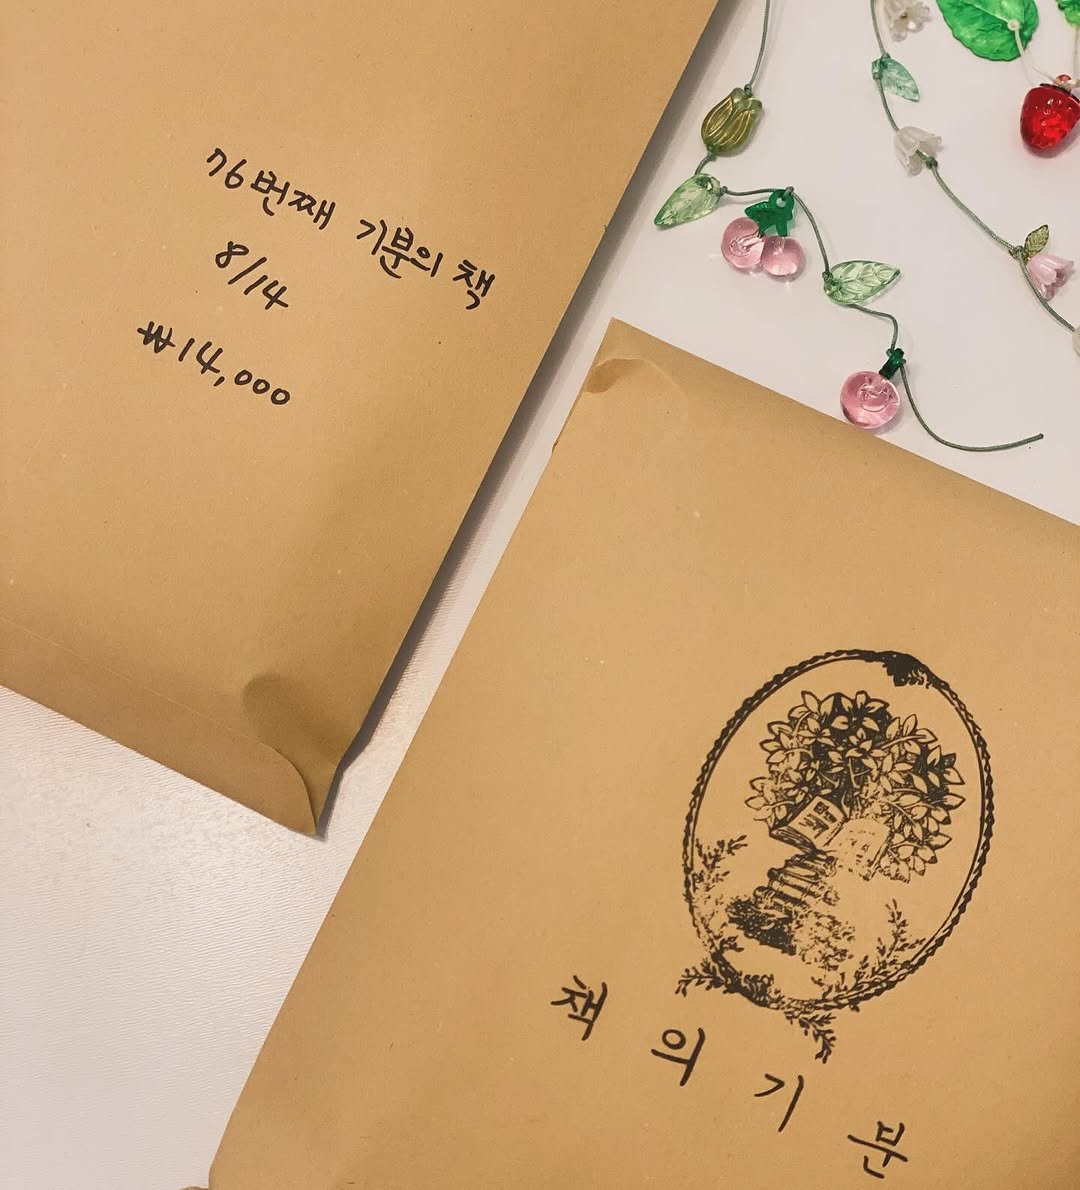 76번째 기분의 책
8/14
₩14,000
책의기분